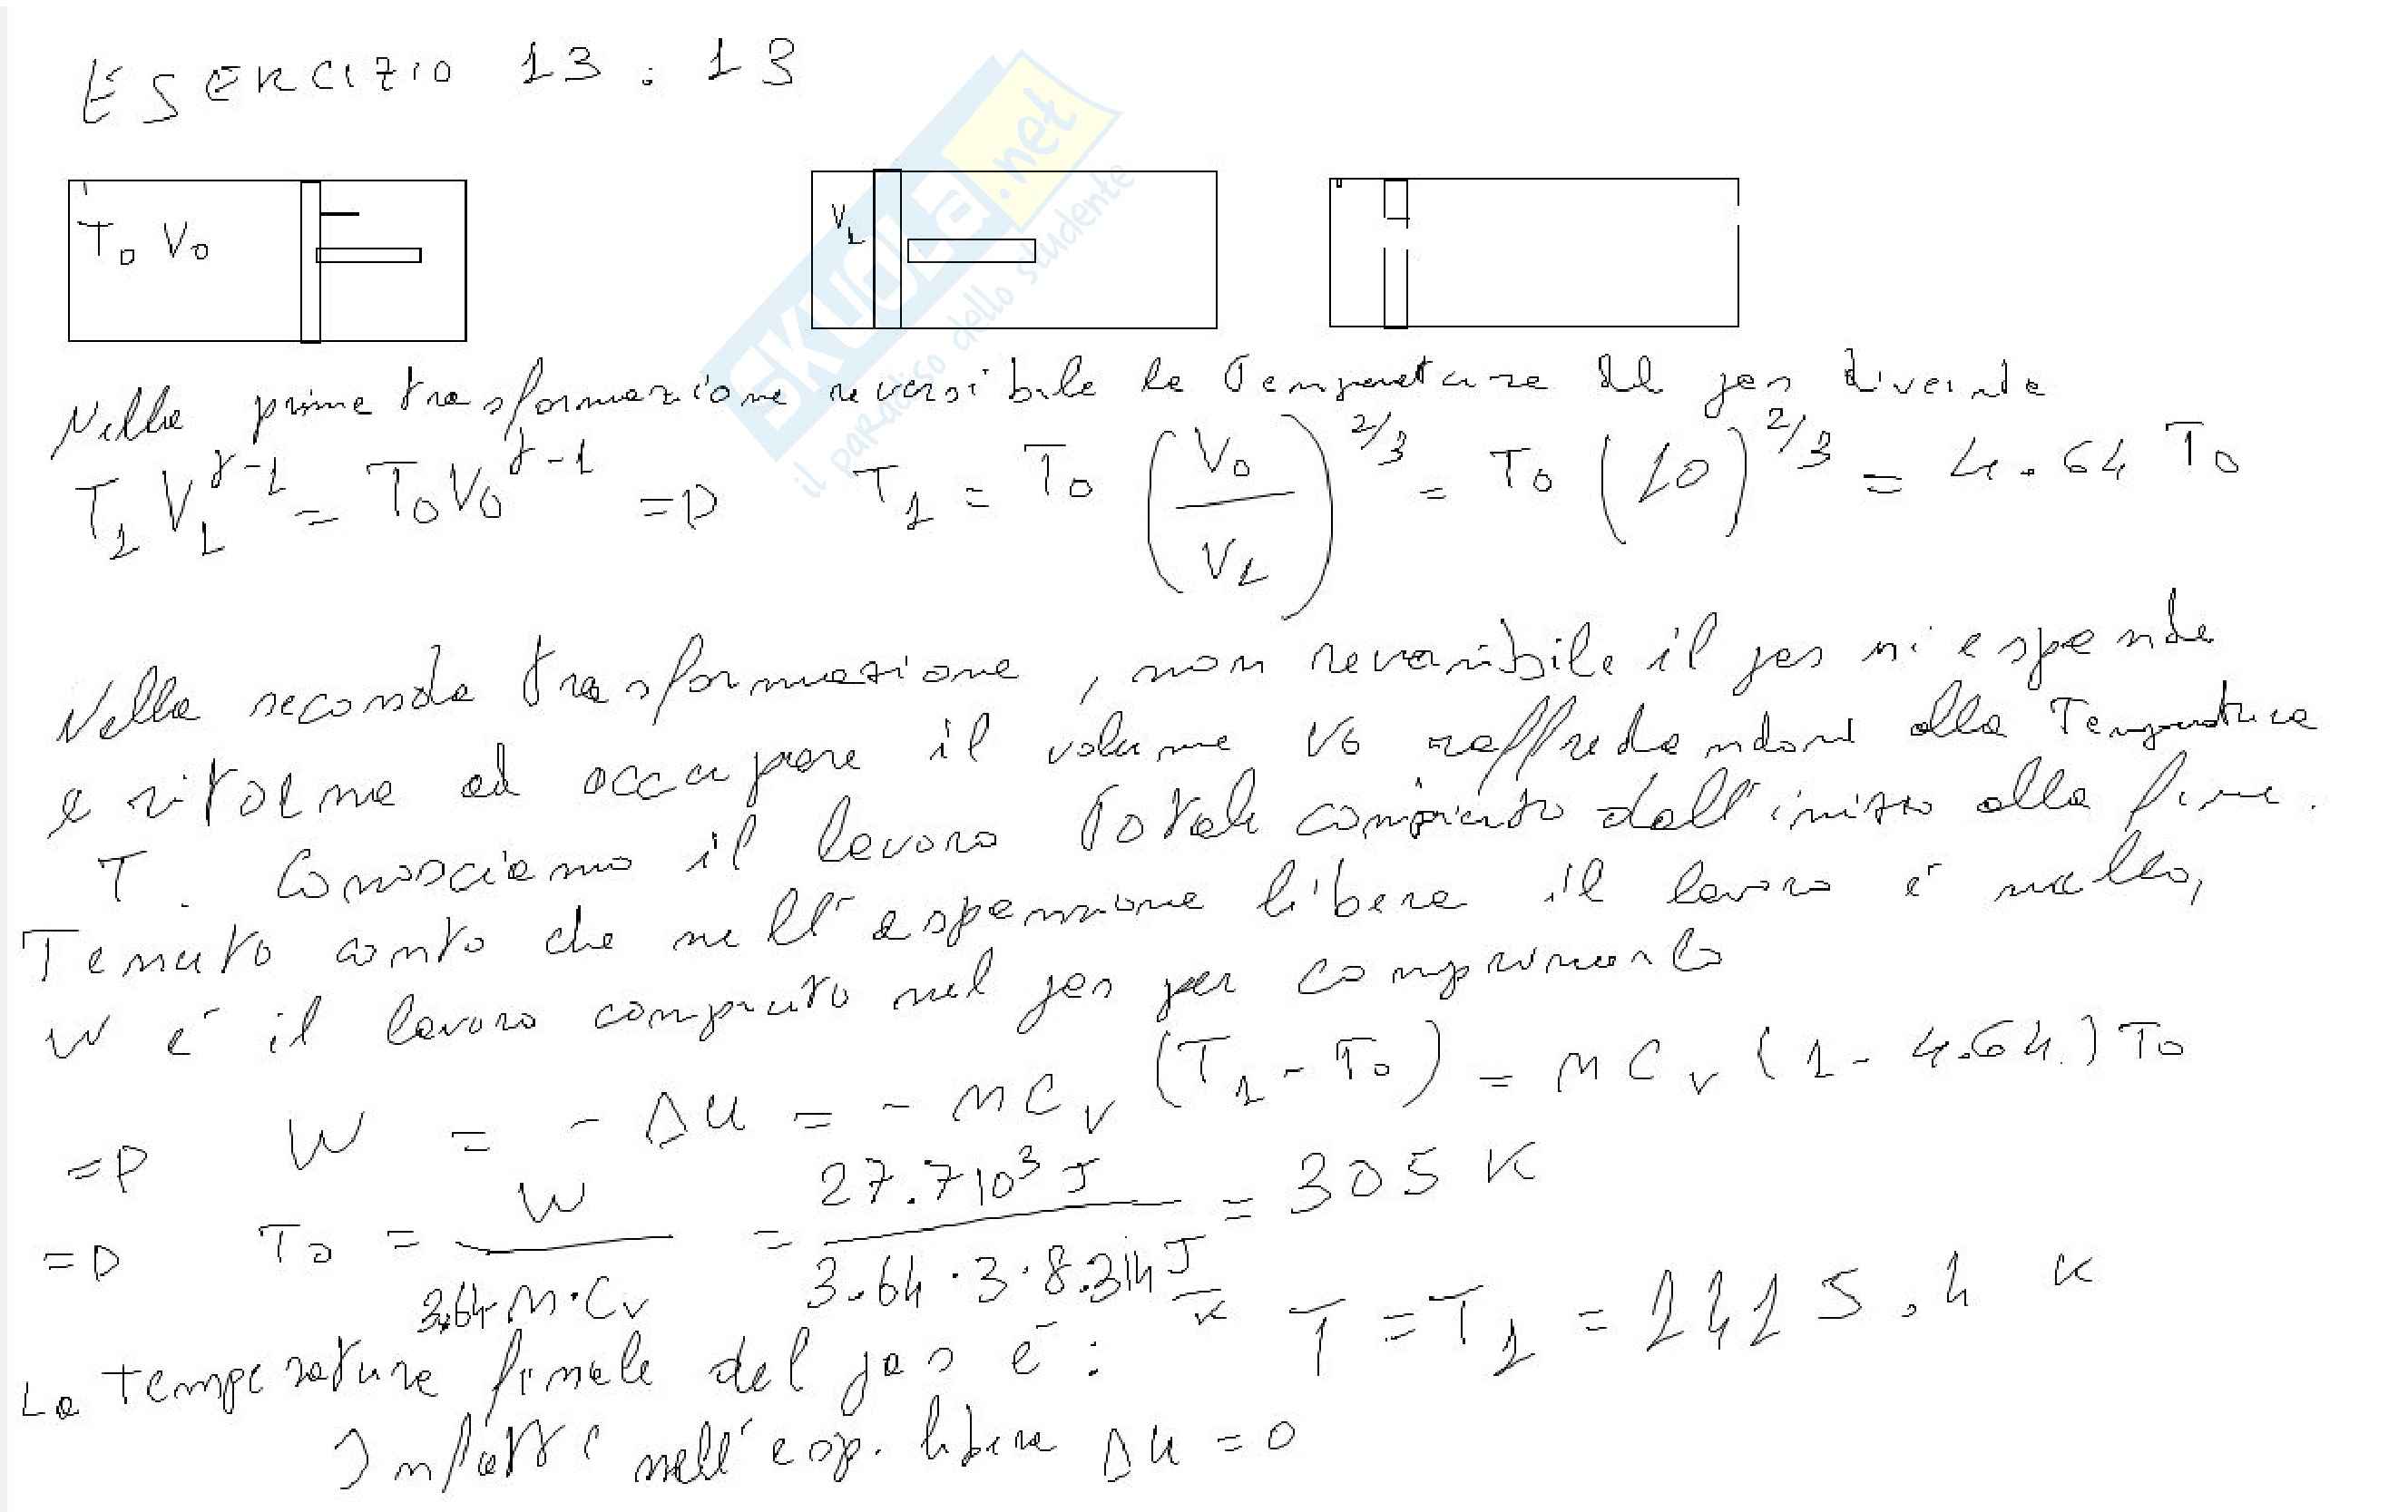 ESERCIZIO 13.13
T₀ V₀
V₁
SKUOLA.net
il paradiso dello studente
Nella prima trasformazione reversibile la Temperatura del gas diventa
T₁ V₁^γ-1 = T₀ V₀^γ-1 => T₁ = T₀ (V₀/V₁)^2/3 = T₀ (10)^2/3 = 4.64 T₀
Nella seconda trasformazione, non reversibile il gas si espande
e ritorna ad occupare il volume V₀ raffredandosi alla Temperatura
T. Conosciamo il lavoro Totale compiuto dall'inizio alla fine.
Tenuto conto che nell'espansione libera il lavoro é nullo,
W é il lavoro compiuto sul gas per comprimerlo
=> W = - ΔU = - n C_V (T₁ - T₀) = n C_V (1 - 4.64) T₀
=> T₀ = W / 3.64 n·C_V = 27.7 10³ J / 3.64 · 3 · 8.314 J/K = 305 K
La temperatura finale del gas é: T = T₁ = 1415.4 K
Infatti nell'esp. libera ΔU = 0